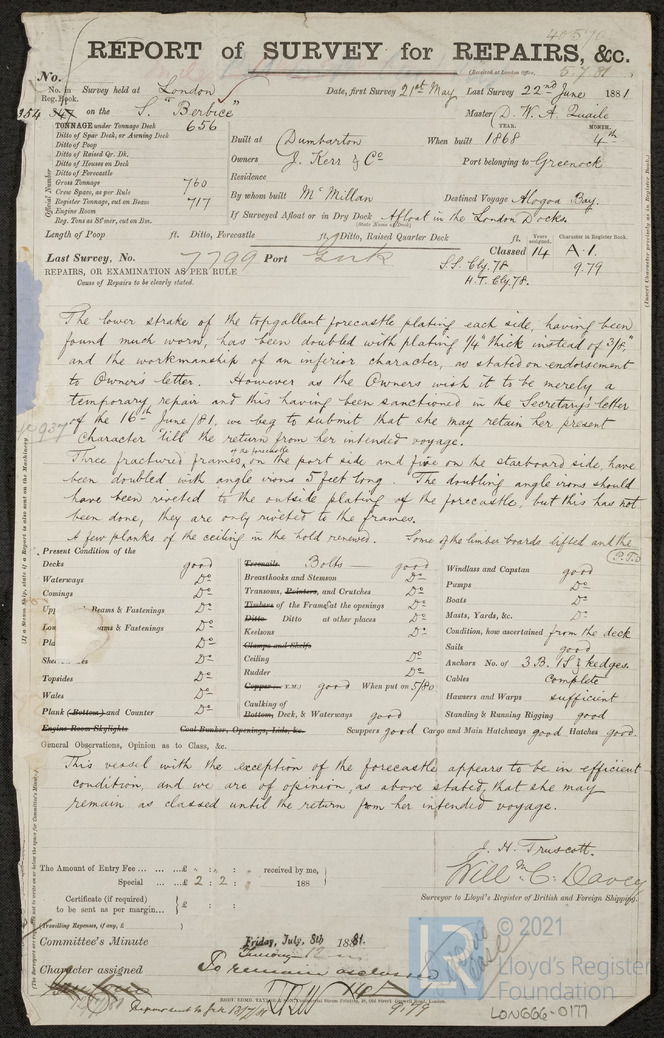 40570
REPORT of SURVEY for REPAIRS, &c.
(Received at London Office, 5.7.81
No.
No. in Reg. Book. Survey held at London Date, first Survey 21st May Last Survey 22nd June 1881
354 347 on the S. "Berbice" Master D. W. A. Quaile
TONNAGE under Tonnage Deck 656
Ditto of Spar Deck, or Awning Deck
Ditto of Poop
Ditto of Raised Qr. Dk.
Ditto of Houses on Deck
Ditto of Forecastle
Gross Tonnage 760
Crew Space, as per Rule
Register Tonnage, cut on Beam 717
Engine Room
Reg. Tons as St'mer, cut on Bm.
Official Number
Built at Dumbarton When built YEAR. 1868 MONTH. 4th
Owners J. Kerr & Co Port belonging to Greenock
Residence
By whom built McMillan Destined Voyage Alogoa Bay.
If Surveyed Afloat or in Dry Dock Afloat in the London Docks
(State Name of Dock)
Length of Poop ft. Ditto, Forecastle ft. Ditto, Raised Quarter Deck ft.
Years assigned. Character in Register Book.
Classed 14 A.1.
Last Survey, No. 7799 Port
S.S. Cly. 78. 9.79
H.T. Cly. 78.
REPAIRS, OR EXAMINATION AS PER RULE
Cause of Repairs to be clearly stated.
The lower strake of the topgallant forecastle plating each side, having been
found much worn, has been doubled with plating 1/4" thick instead of 3/8",
and the workmanship of an inferior character, as stated on endorsement
to Owner's letter. However as the Owners wish it to be merely a
temporary repair and this having been sanctioned in the Secretary's letter
of the 16th June /81, we beg to submit that she may retain her present
Character till the return from her intended voyage.
Three fractured frames, of the forecastle on the port side and five on the starboard side, have
been doubled with angle irons 5 feet long. The doubling angle irons should
have been riveted to the outside plating of the forecastle, but this has not
been done, they are only riveted to the frames.
A few planks of the ceiling in the hold renewed. Some of the limber boards lifted and the
P.T.O
Present Condition of the
Decks good
Waterways Do
Comings Do
Beams & Fastenings Do
Beams & Fastenings Do
Do
Do
Topsides Do
Wales Do
Plank (Bottom) and Counter Do
Engine Room Skylights Coal Bunker, Openings, Lids, &c.
Treenails Bolts good
Breasthooks and Stemson Do
Transoms, Pointers, and Crutches Do
Timbers of the Frame at the openings Do
Ditto Ditto at other places Do
Keelsons Do
Clamps and Shelfs
Ceiling Do
Rudder Do
Copper (or Y.M.) good When put on 5/80
Caulking of Bottom, Deck, & Waterways good
Windlass and Capstan good
Pumps Do
Boats Do
Masts, Yards, &c. Do
Condition, how ascertained from the deck
Sails good
Anchors No. of 3 B. 1 S. & kedges.
Cables complete
Hawsers and Warps sufficient
Standing & Running Rigging good
Scuppers good Cargo and Main Hatchways good Hatches good
General Observations, Opinion as to Class, &c.
This vessel with the exception of the forecastle appears to be in efficient
condition, and we are of opinion, as above stated, that she may
remain as classed until the return from her intended voyage.
J. H. Truscott.
Will m C. Davey
Surveyor to Lloyd's Register of British and Foreign Shipping.
The Amount of Entry Fee ... ... ...£ : : received by me,
Special ... ...£ 2 : 2 : 188
Certificate (if required) to be sent as per margin... £ :
(Travelling Expenses, if any, £ )
Committee's Minute Friday, July, 8th 1881.
Character assigned To remain as classed
9.79
© 2021
Lloyd's Register
Foundation
LON666-0177